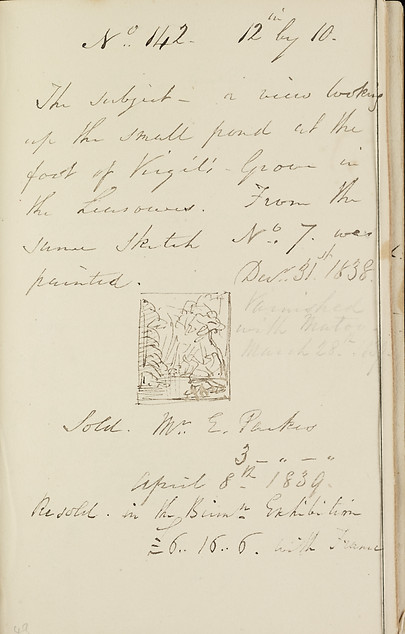 No. 142. 12in by 10.
The subject - a view looking
up the small pond at the
foot of Virgil's - Grove in
the Leasowes. From the
same sketch No. 7. was
painted. Decr. 31st 1838.
Varnished
with
March 28th
Sold. Mr. E. Parkes
3 - " - "
April 8th 1839.
Resold. in the Birmm Exhibition
£6..16..6. with Frame
49